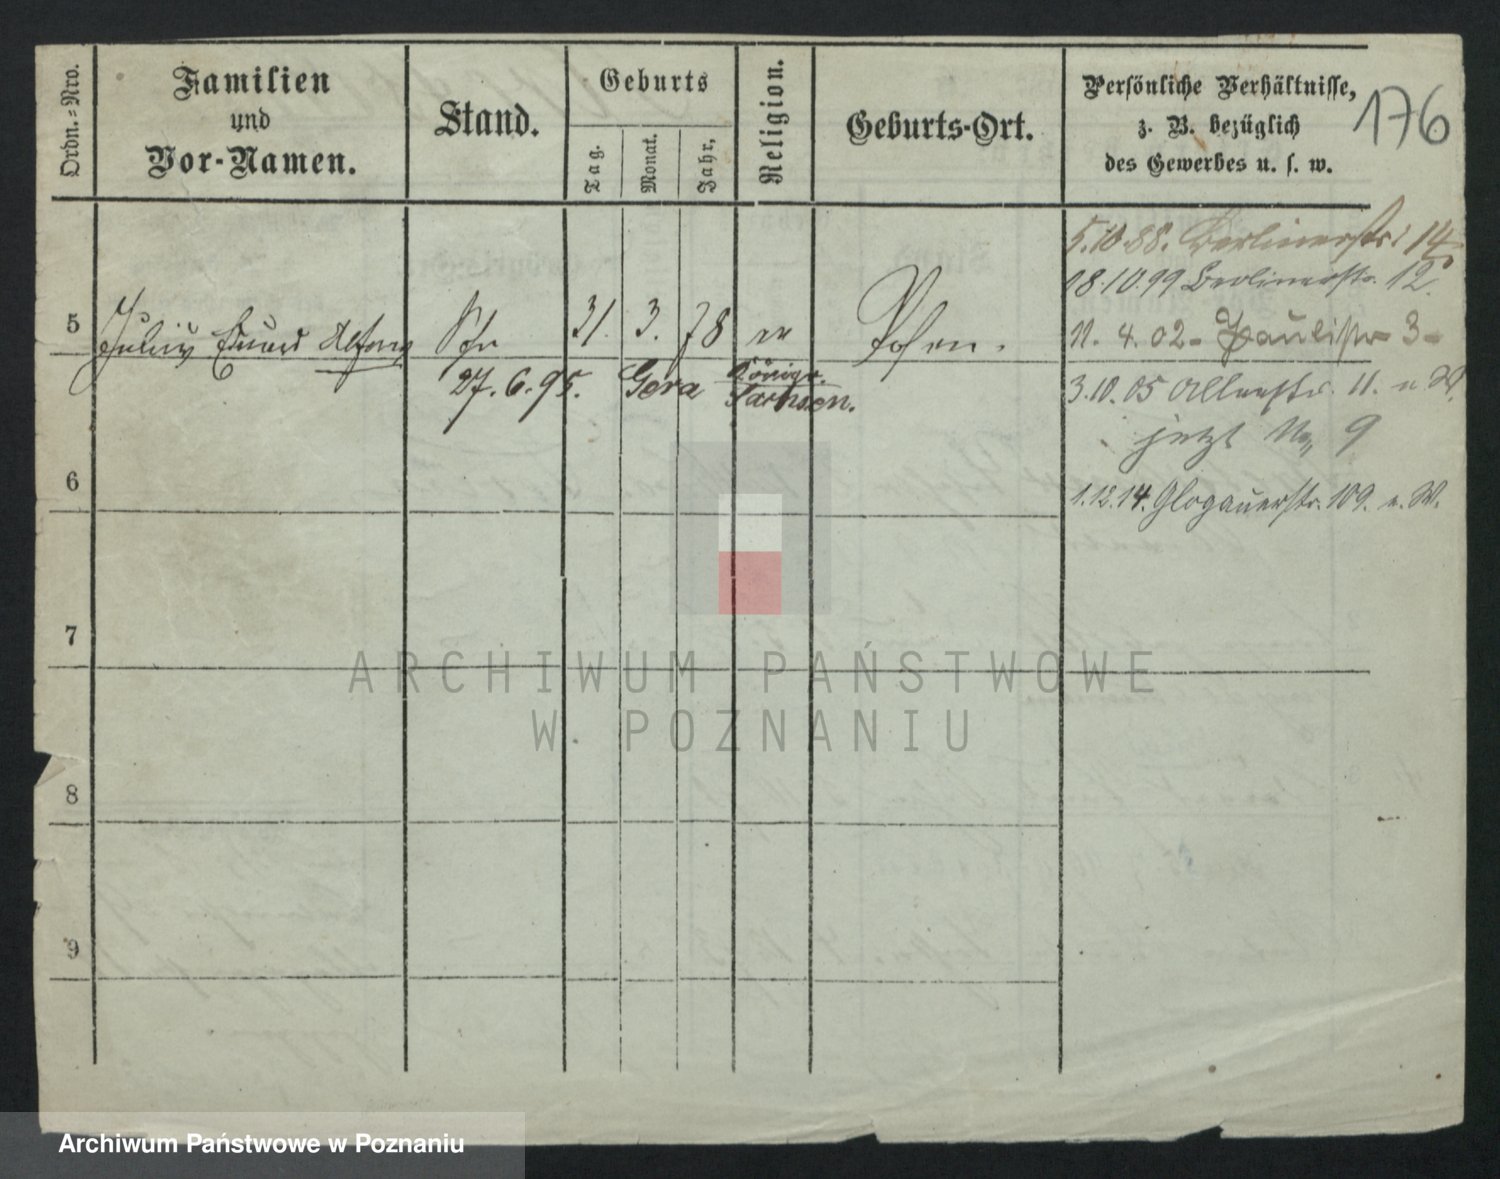 Ordn.-Nro.
Familien
und
Vor-Namen.
Stand.
Geburts
Tag.
Monat.
Jahr,
Religion.
Geburts-Ort.
Persönliche Verhältnisse,
z. B. bezüglich
des Gewerbes u. s. w.
176
5.10.88. Berlinerstr. 14
18.10.99 Berlinerstr. 12.
5 Julius Eduard Alfons 31. 3. 78 Posen.
11. 4. 02 - Paulistr 3 -
27. 6. 95. Gera Königr. Sachsen.
3.10.05 11. n W.
jetzt No 9
6
1.12.14. Glogauerstr. 109. n. W.
7
8
9
ARCHIWUM PAŃSTWOWE
W POZNANIU
Archiwum Państwowe w Poznaniu